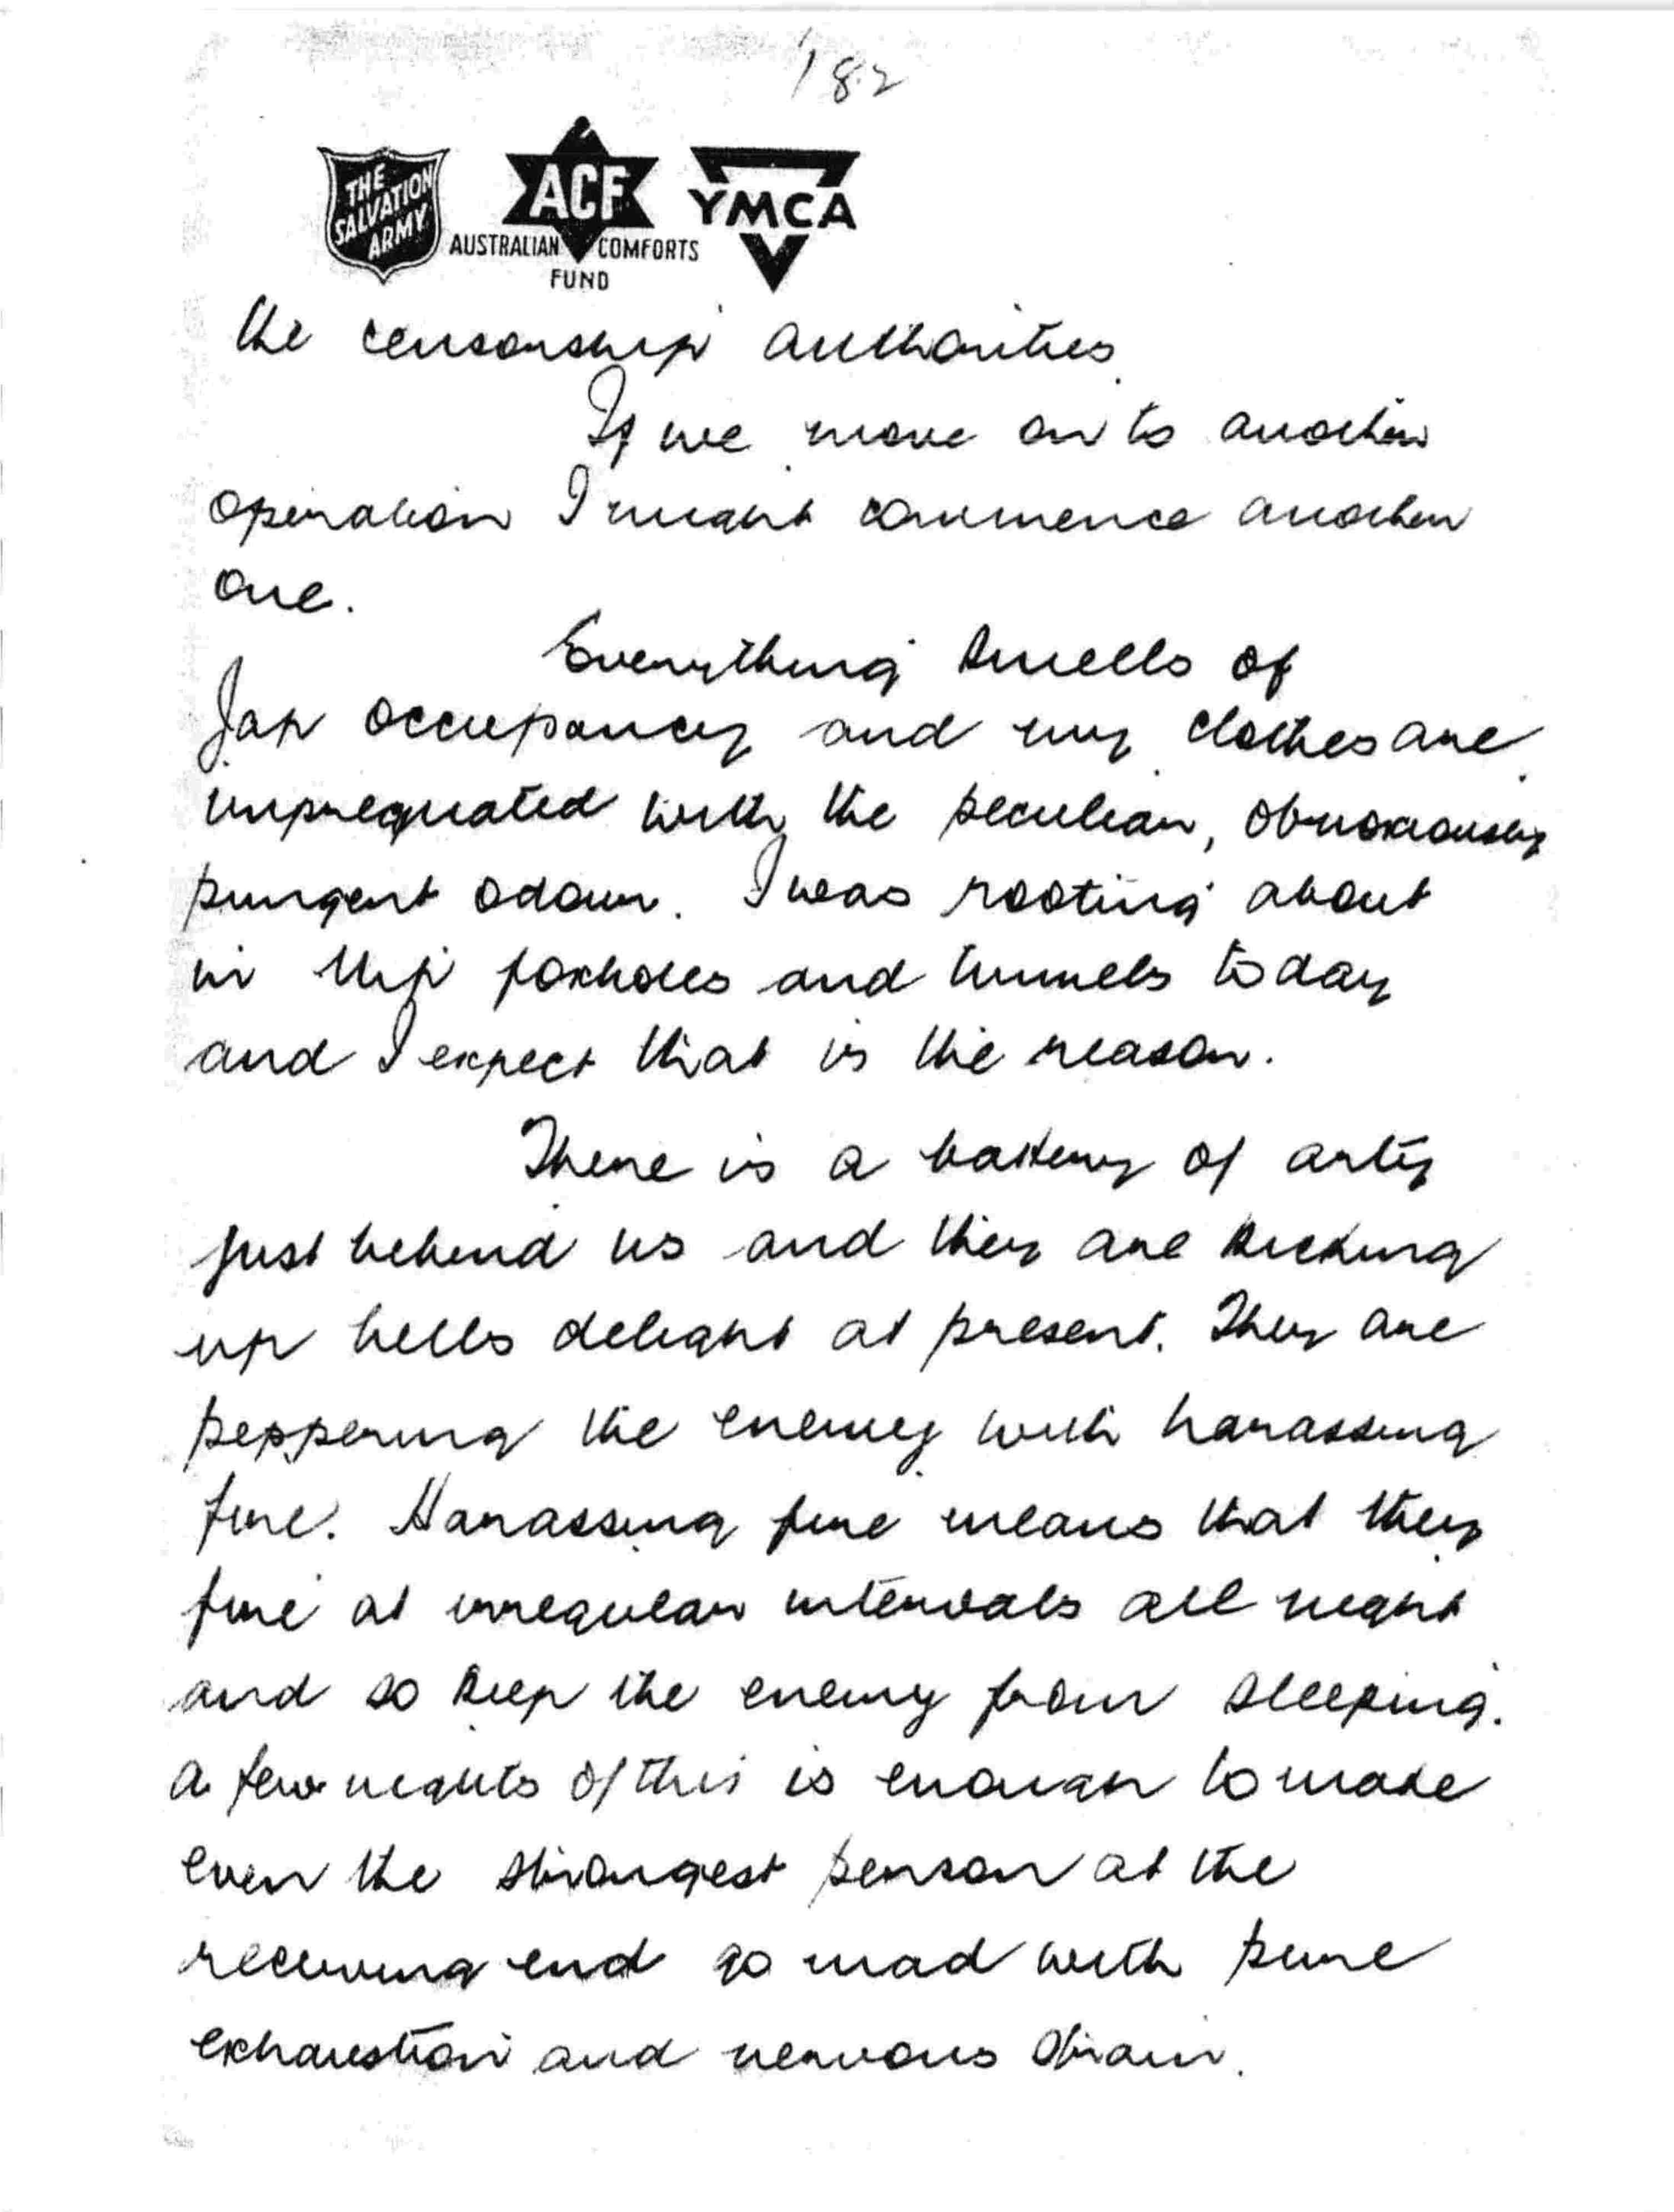 182
THE
SALVATION
ARMY
ACF
AUSTRALIAN COMFORTS
FUND
YMCA
the censorship authorities.
If we move on to another
operation I might commence another
one.
Everything smells of
Jap occupancy and my clothes are
impregnated with the peculiar, obnoxiously
pungent odour. I was rooting about
in their foxholes and tunnels today
and I expect that is the reason.
There is a battery of arty
just behind us and they are kicking
up hells delight at present. They are
peppering the enemy with harassing
fire. Harassing fire means that they
fire at irregular intervals all night
and so keep the enemy from sleeping.
A few nights of this is enough to make
even the strongest person at the
receiving end go mad with pure
exhaustion and nervous strain.